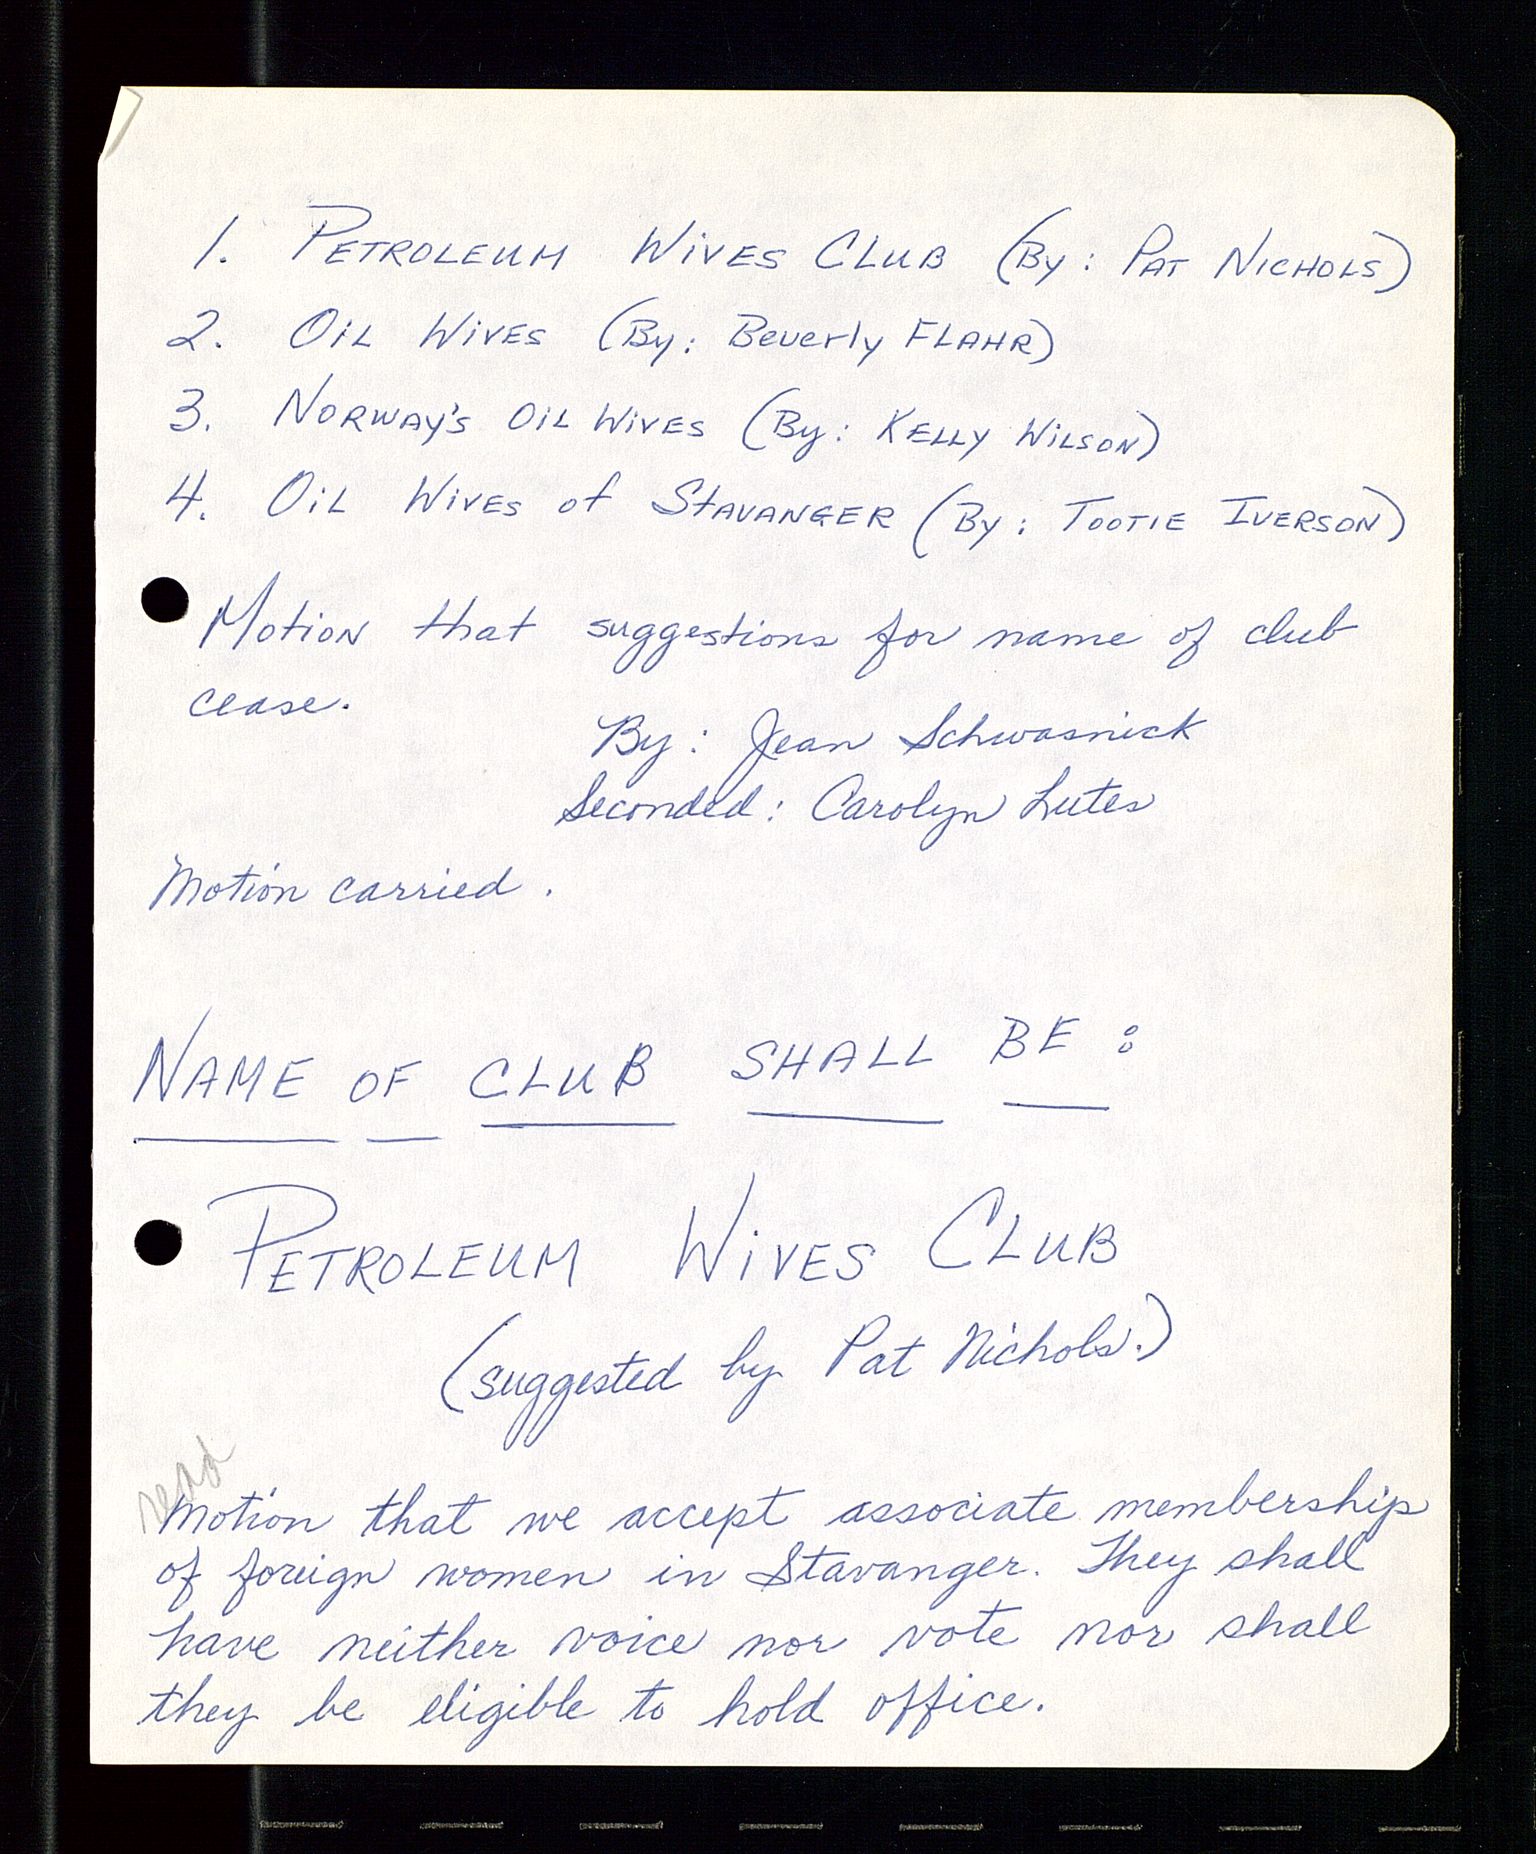 1. PETROLEUM WIVES CLUB (By: PAT NICHOLS)
2. OIL WIVES (By: Beverly FLAHR)
3. NORWAY'S OIL WIVES (By: KELLY WILSON)
4. OIL WIVES of STAVANGER (By: TOOTIE IVERSON)
Motion that suggestions for name of club
cease.
By: Jean Schwasnick
Seconded: Carolyn Lutes
Motion carried.
NAME OF CLUB SHALL BE:
PETROLEUM WIVES CLUB
(suggested by Pat Nichols.)
read
Motion that we accept associate memberships
of foreign women in Stavanger. They shall
have neither voice nor vote nor shall
they be eligible to hold office.